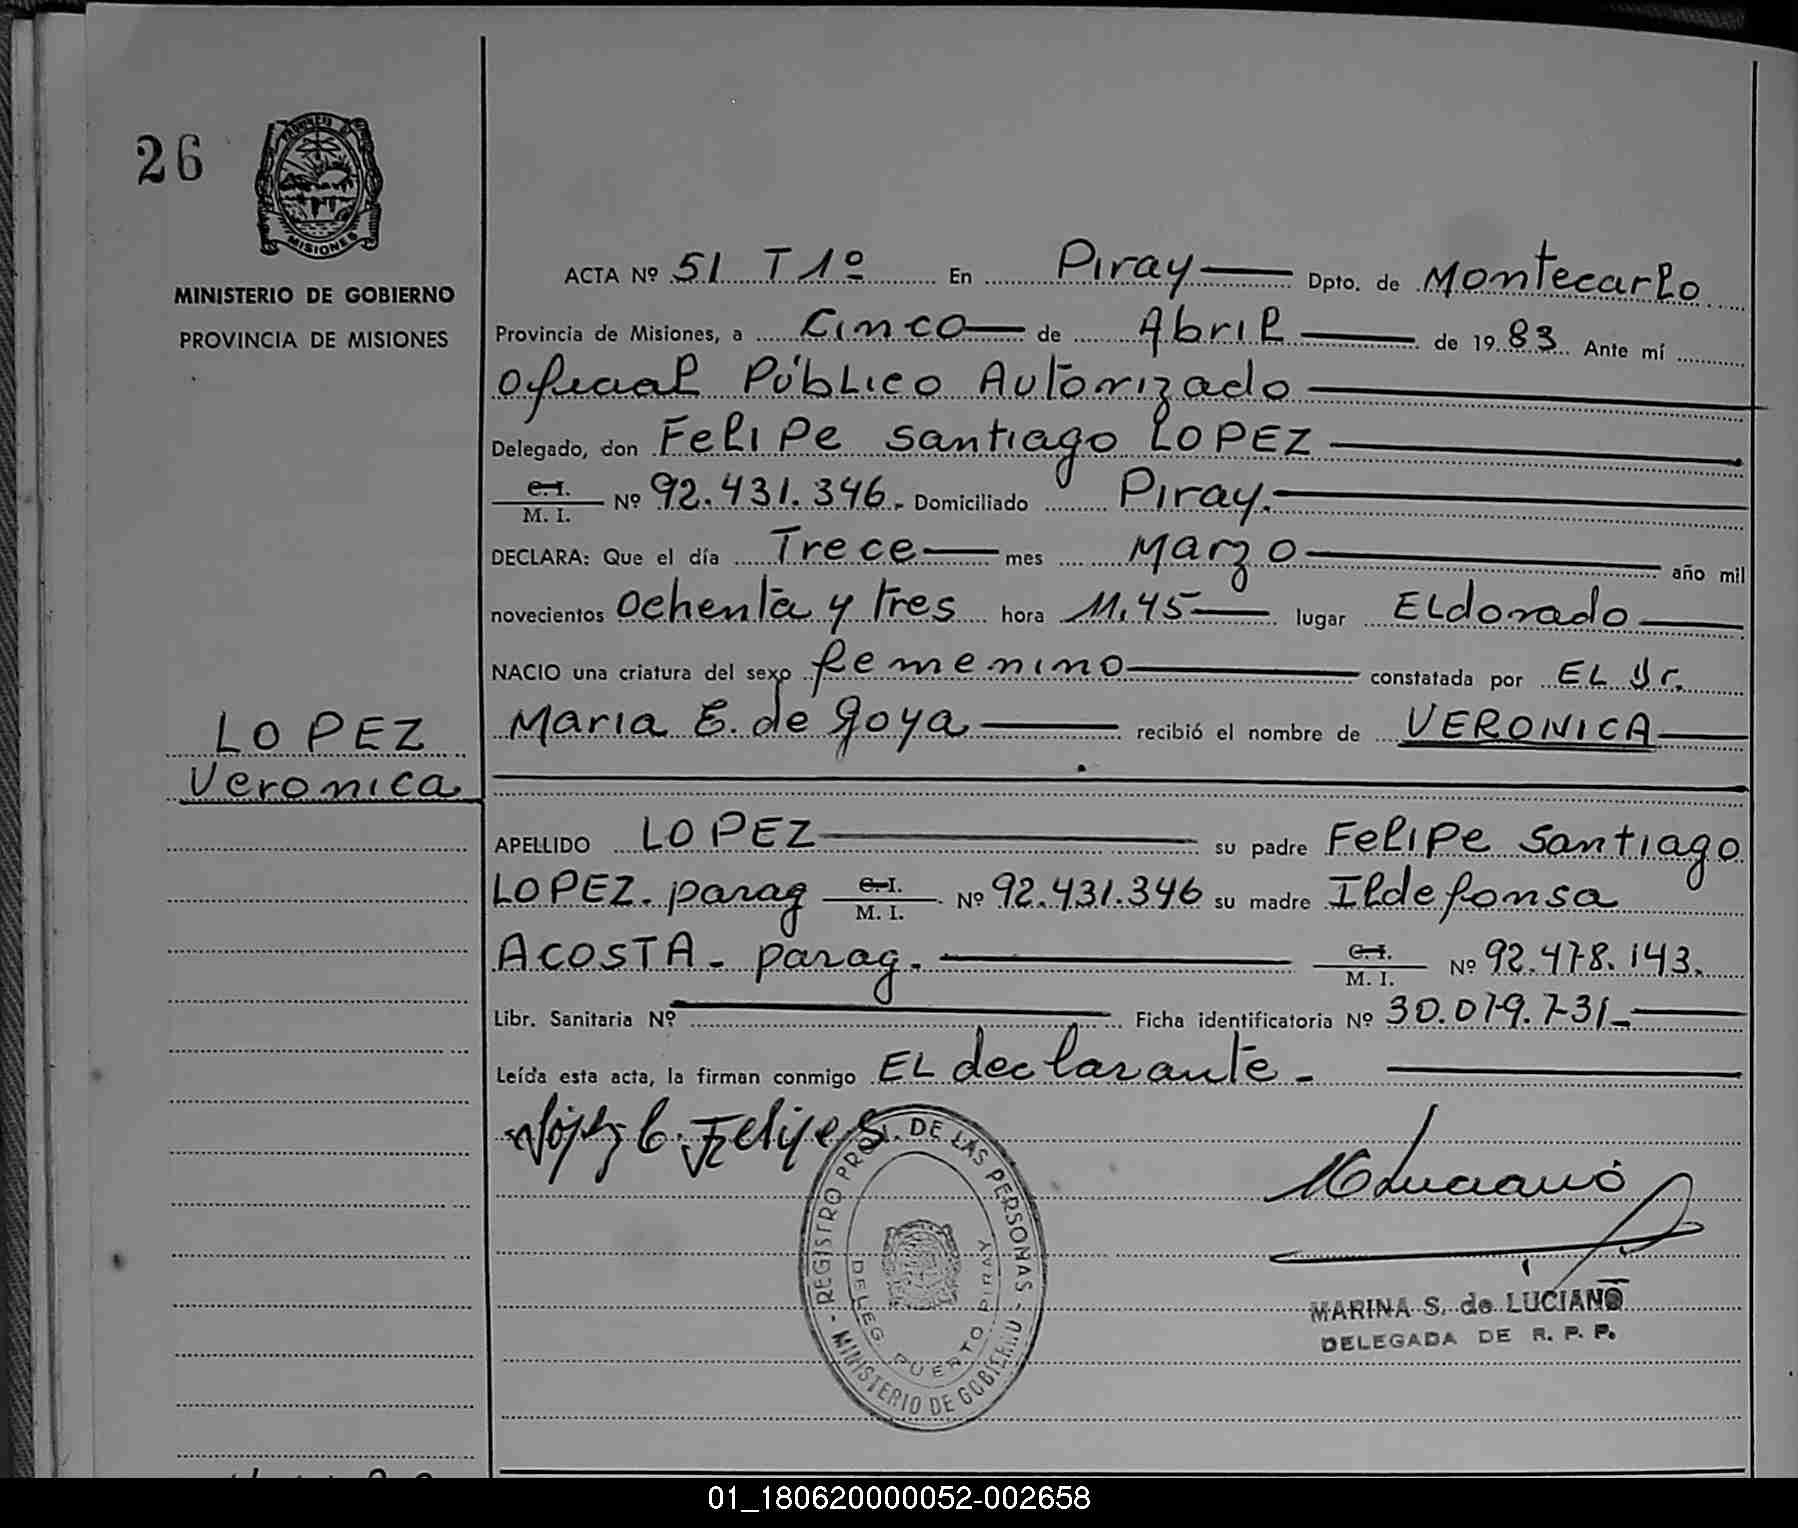 26
PROVINCIA D
MISIONES
MINISTERIO DE GOBIERNO
PROVINCIA DE MISIONES
LOPEZ
Veronica
ACTA Nº 51 T 1º En Piray Dpto. de Montecarlo
Provincia de Misiones, a Cinco de Abril de 1983 Ante mí
Oficial Público Autorizado
Delegado, don Felipe Santiago LOPEZ
C. I.
M. I. Nº 92.431.346. Domiciliado Piray.
DECLARA: Que el día Trece mes Marzo año mil
novecientos Ochenta y tres hora 11,45 lugar ELdorado
NACIO una criatura del sexo femenino constatada por EL Dr.
Maria E. de Goya recibió el nombre de VERONICA
APELLIDO LOPEZ su padre Felipe Santiago
LOPEZ. parag C. I. M. I. Nº 92.431.346 su madre Ildefonsa
ACOSTA - parag. C. I. M. I. Nº 92.478.143.
Libr. Sanitaria Nº Ficha identificatoria Nº 30.079.731
Leída esta acta, la firman conmigo EL declarante -
López C. Felipe S.
REGISTRO PROV. DE LAS PERSONAS - MINISTERIO DE GOBIERNO -
DELEG PUERTO PIRAY
MARINA S. de LUCIANO
DELEGADA DE R. P. P.
01_180620000052-002658